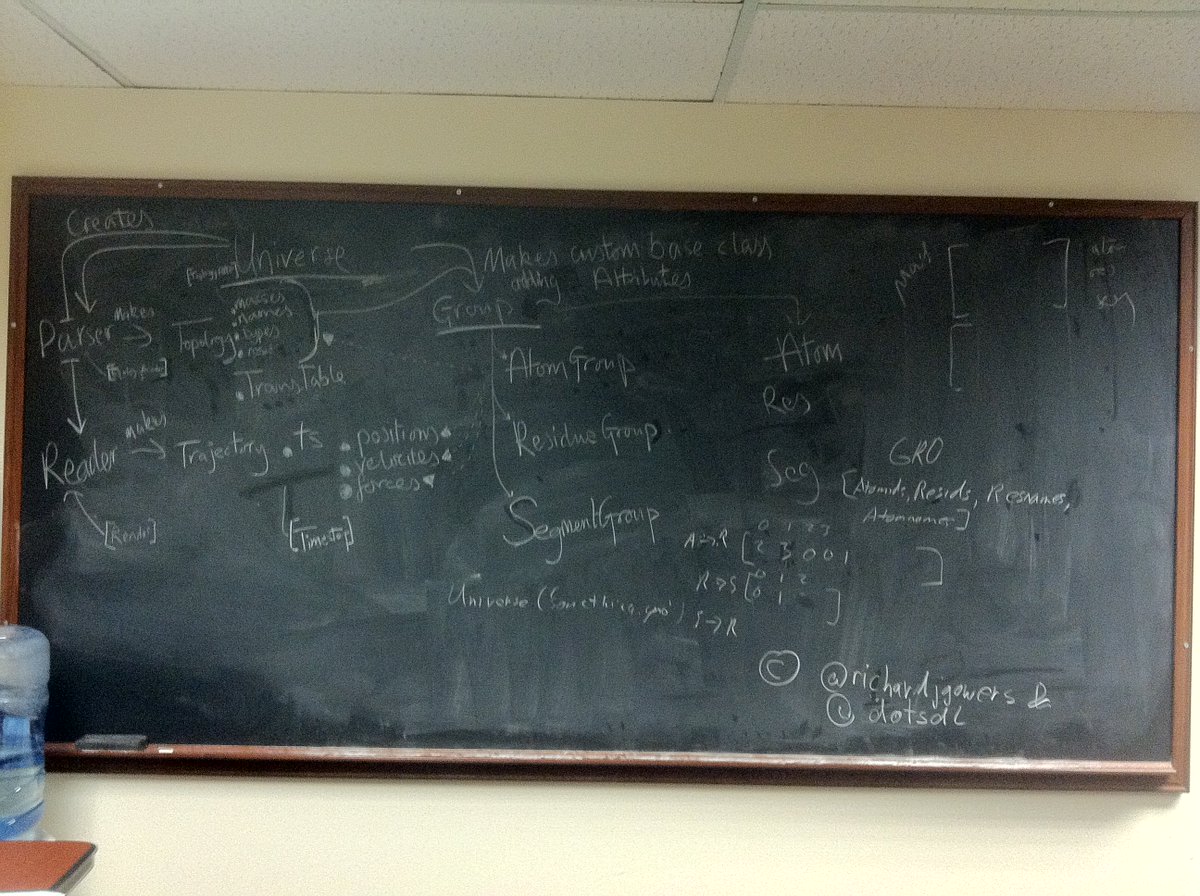 Creates
Universe
Parser
makes
Topology
• masses
• names
• types
• TransTable
Reader
makes
Trajectory
• ts
• positions
• velocites
• forces
[Reader]
[Timestep]
Makes custom base class
adding Attributes
Group
• AtomGroup
ResidueGroup
SegmentGroup
Atom
Res
Seg
GRO
[Atomids, Resids, Resnames,
Atomnames]
A→R
0 1 2 3
[2 3 0 0 1
]
R→S
0 1 2
[0 1
]
S→R
Universe ('Something.gro')
© @richardjgowers &
@ dotsdl